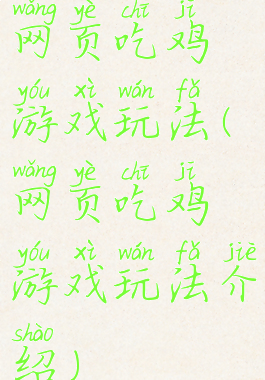 wǎng yè chī jī
网页吃鸡
yóu xì wán fǎ
游戏玩法(
wǎng yè chī jī
网页吃鸡
yóu xì wán fǎ jiè
游戏玩法介
shào
绍)